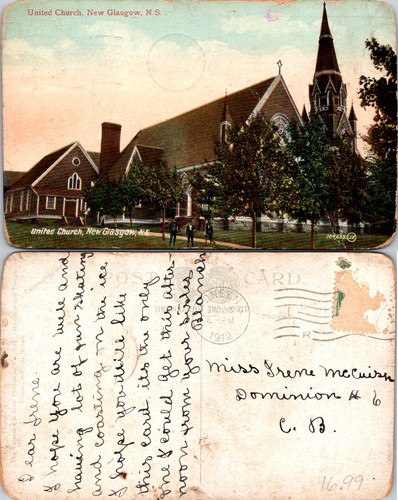 United Church, New Glasgow, N.S.
United Church, New Glasgow, N.S.
POST CARD.
1912
Dear Irene.
I hope you are well and
having lot of fun skating
and coasting on the ice
I hope you will like
this card its the only
one I could get this after-
noon from your sister
Beanah
Miss Irene McCuish
Dominion # 6
C. B.
16.99